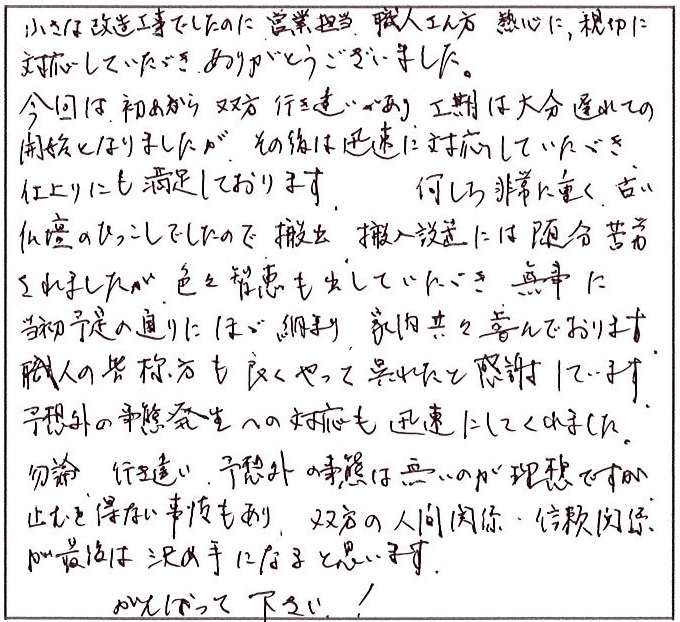 小さな改造工事でしたのに 営業担当 職人さん方 熱心に,親切に
対応していただき ありがとうございました。
今回は 初めから 双方 行き違いがあり 工期は大分遅れての
開始となりましたが その後は迅速に対応していただき
仕上りにも満足しております. 何しろ非常に重く 古い
仏壇のひっこしでしたので 搬出 搬入設置には随分苦労
されましたが 色々智恵も出していただき 無事に
当初予定の通りにほゞ納まり 家内共々喜んでおります.
職人の皆様方も良くやって呉れたと感謝しています.
予想外の事態発生への対応も迅速にしてくれました。
勿論 行き違い.予想外の事態は無いのが理想ですが
止むを得ない事情もあり、双方の人間関係・信頼関係
が最後は決め手になると思います.
がんばって下さい.!